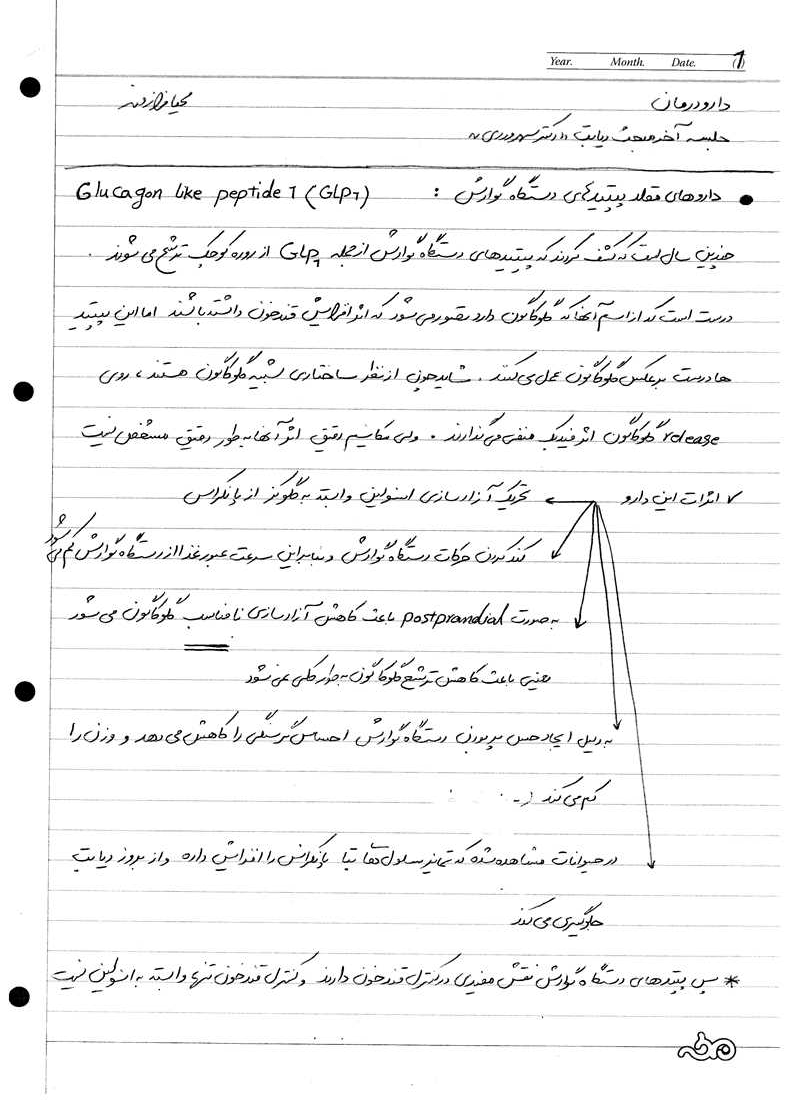 Year. Month. Date. (1)
دارو درمان محیا فرازدند
جلسه آخر مبحث دیابت دکتر سهروردی
● داروهای مقلد پپتیدهای دستگاه گوارش : Glucagon like peptide 1 (GLP1)
چندین سال است که کشف کردند که پپتیدهای دستگاه گوارش از جمله GLP1 از روده کوچک ترشح می شوند .
درست است که از اسم آنها که گلوکاگون دارد تصور می شود که اثر افزایش قند خون داشته باشند اما این پپتید
ها درست برعکس گلوکاگون عمل می کنند . شاید چون از نظر ساختاری شبیه گلوکاگون هستند ، روی
release گلوکاگون اثر فیدبک منفی می گذارند . ولی مکانیسم دقیق اثر آنها به طور دقیق مشخص نیست
✓ اثرات این دارو ← تحریک آزادسازی انسولین وابسته به گلوکز از پانکراس
کند کردن حرکات دستگاه گوارش و بنابراین سرعت عبور غذا از دستگاه گوارش کم می شود
به صورت postprandial باعث کاهش آزادسازی نامناسب گلوکاگون می شود
یعنی باعث کاهش ترشح گلوکاگون به طور کلی نمی شود
به دلیل ایجاد حس پر بودن دستگاه گوارش احساس گرسنگی را کاهش می دهد و وزن را
کم می کند
در حیوانات مشاهده شده که تمایز سلول های بتا پانکراس را افزایش داده و از بروز دیابت
جلوگیری می کند
* پس پپتیدهای دستگاه گوارش نقش مفیدی در کنترل قند خون دارند و کنترل قند خون تنها وابسته به انسولین نیست